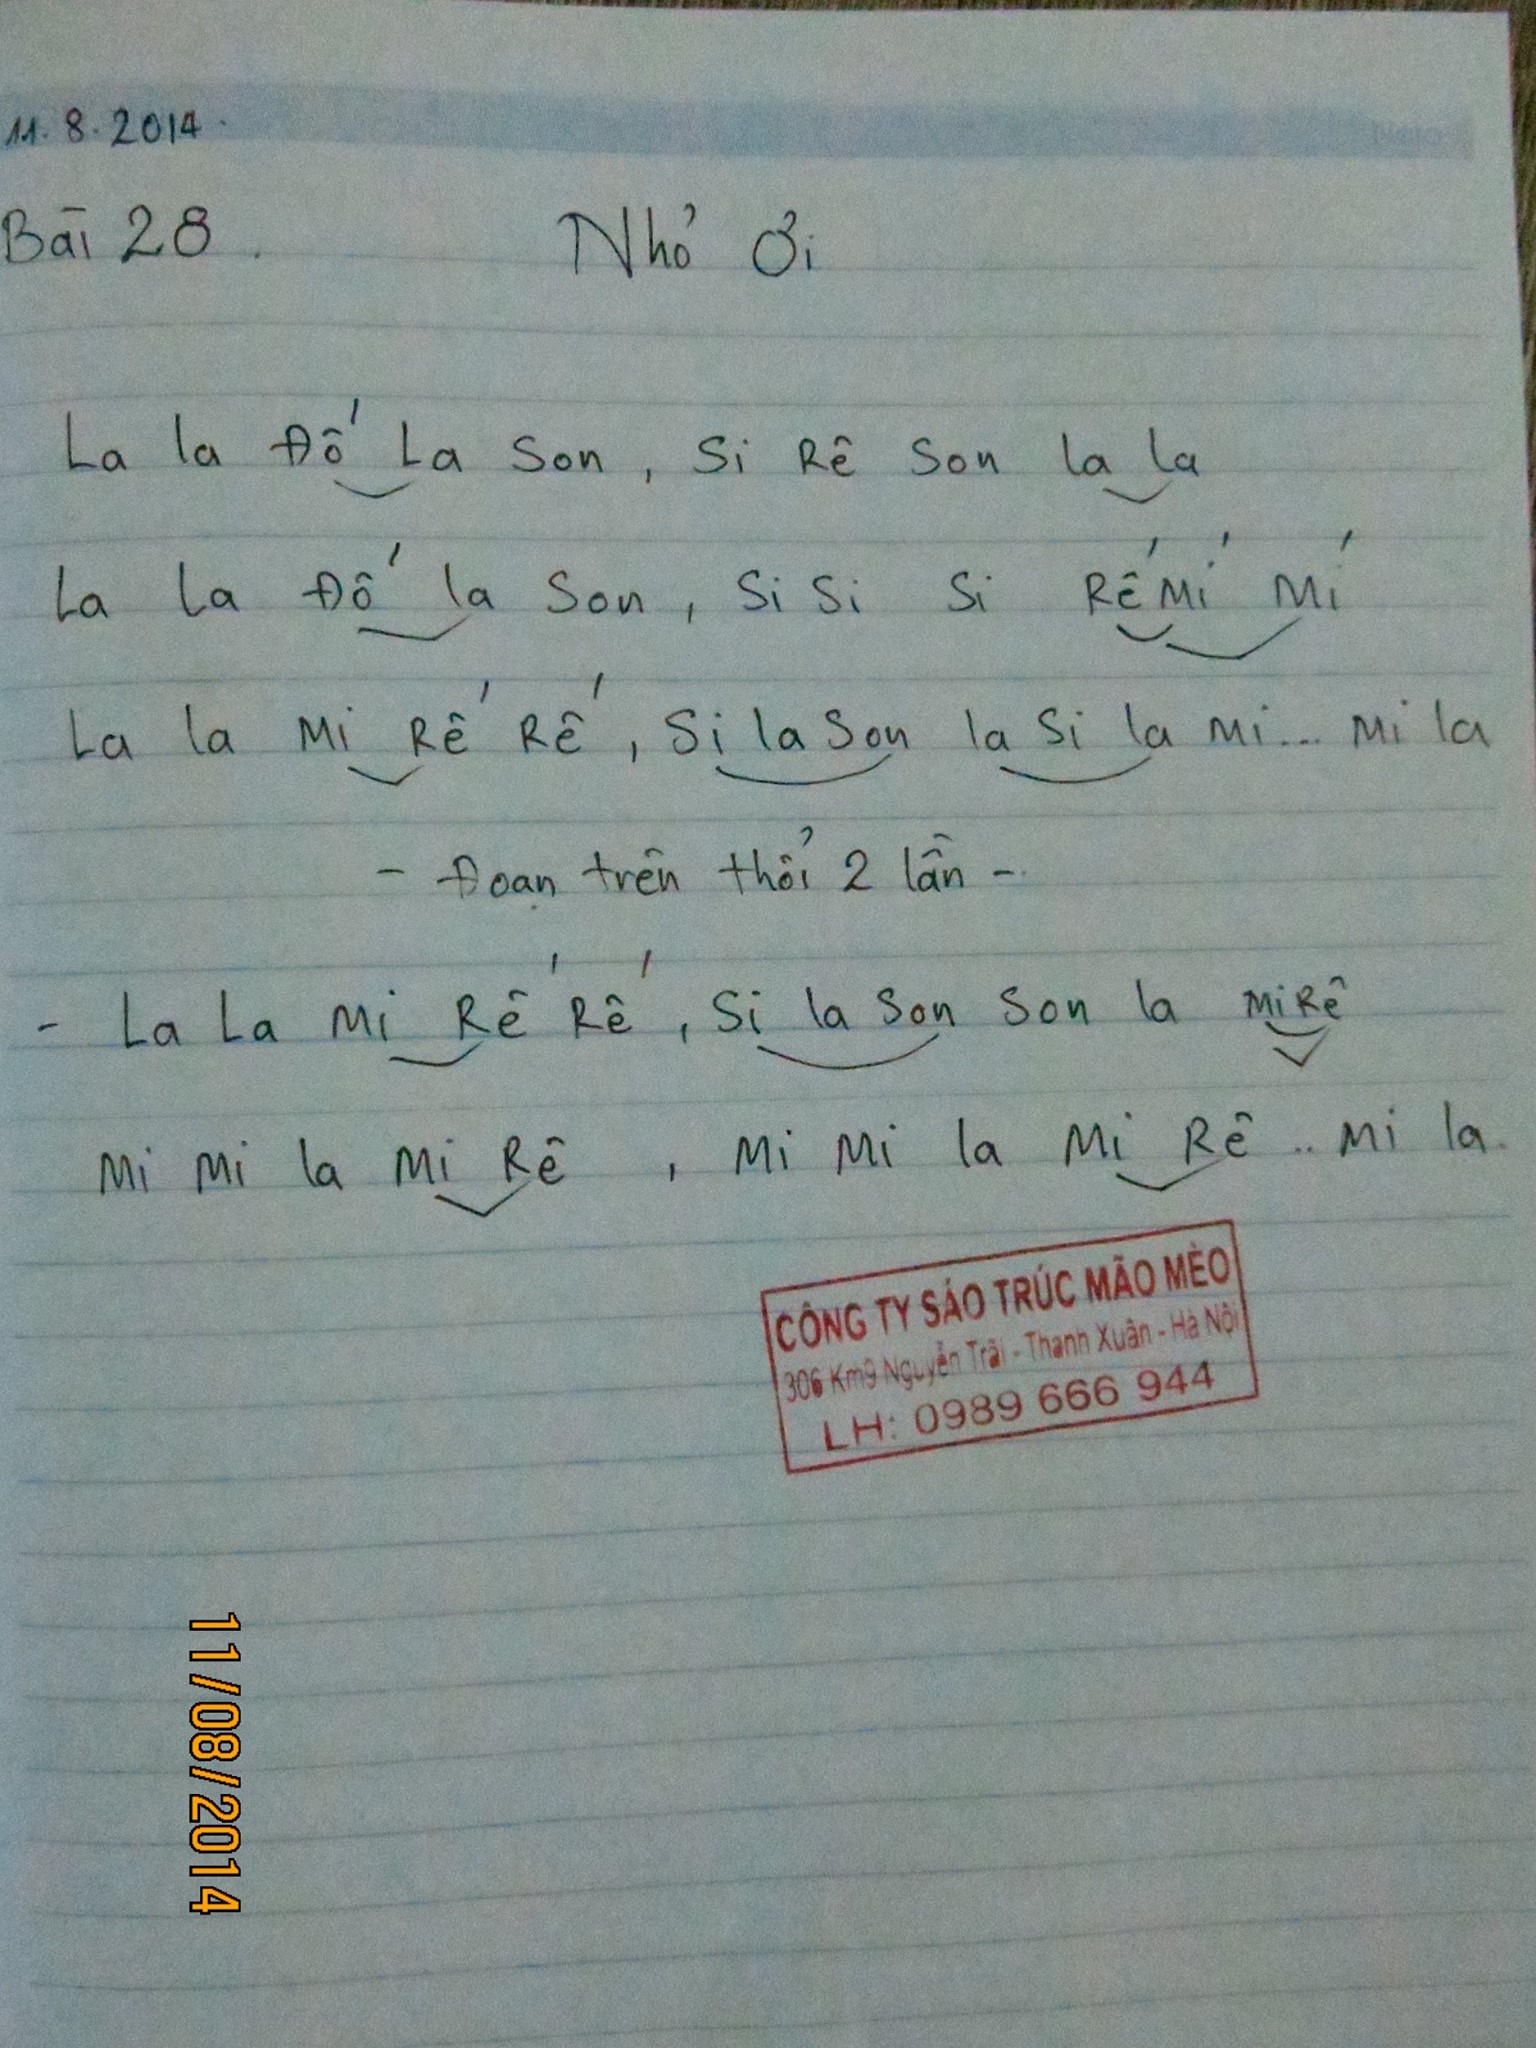 11.8.2014.
Bài 28. Nhỏ Ơi
La la Đố La Son, Si Rê Son la la
La La Đố la Son, Si Si Si Rế Mí Mí
La la Mi Rế Rế, Si la Son la Si la Mi... Mi la
- Đoạn trên thổi 2 lần -
- La La Mi Rế Rế, Si la Son Son la Mi Rê
Mi Mi la Mi Rê , Mi Mi la Mi Rê .. Mi la.
CÔNG TY SÁO TRÚC MÃO MÈO
306 Km9 Nguyễn Trãi - Thanh Xuân - Hà Nội
LH: 0989 666 944
11/08/2014